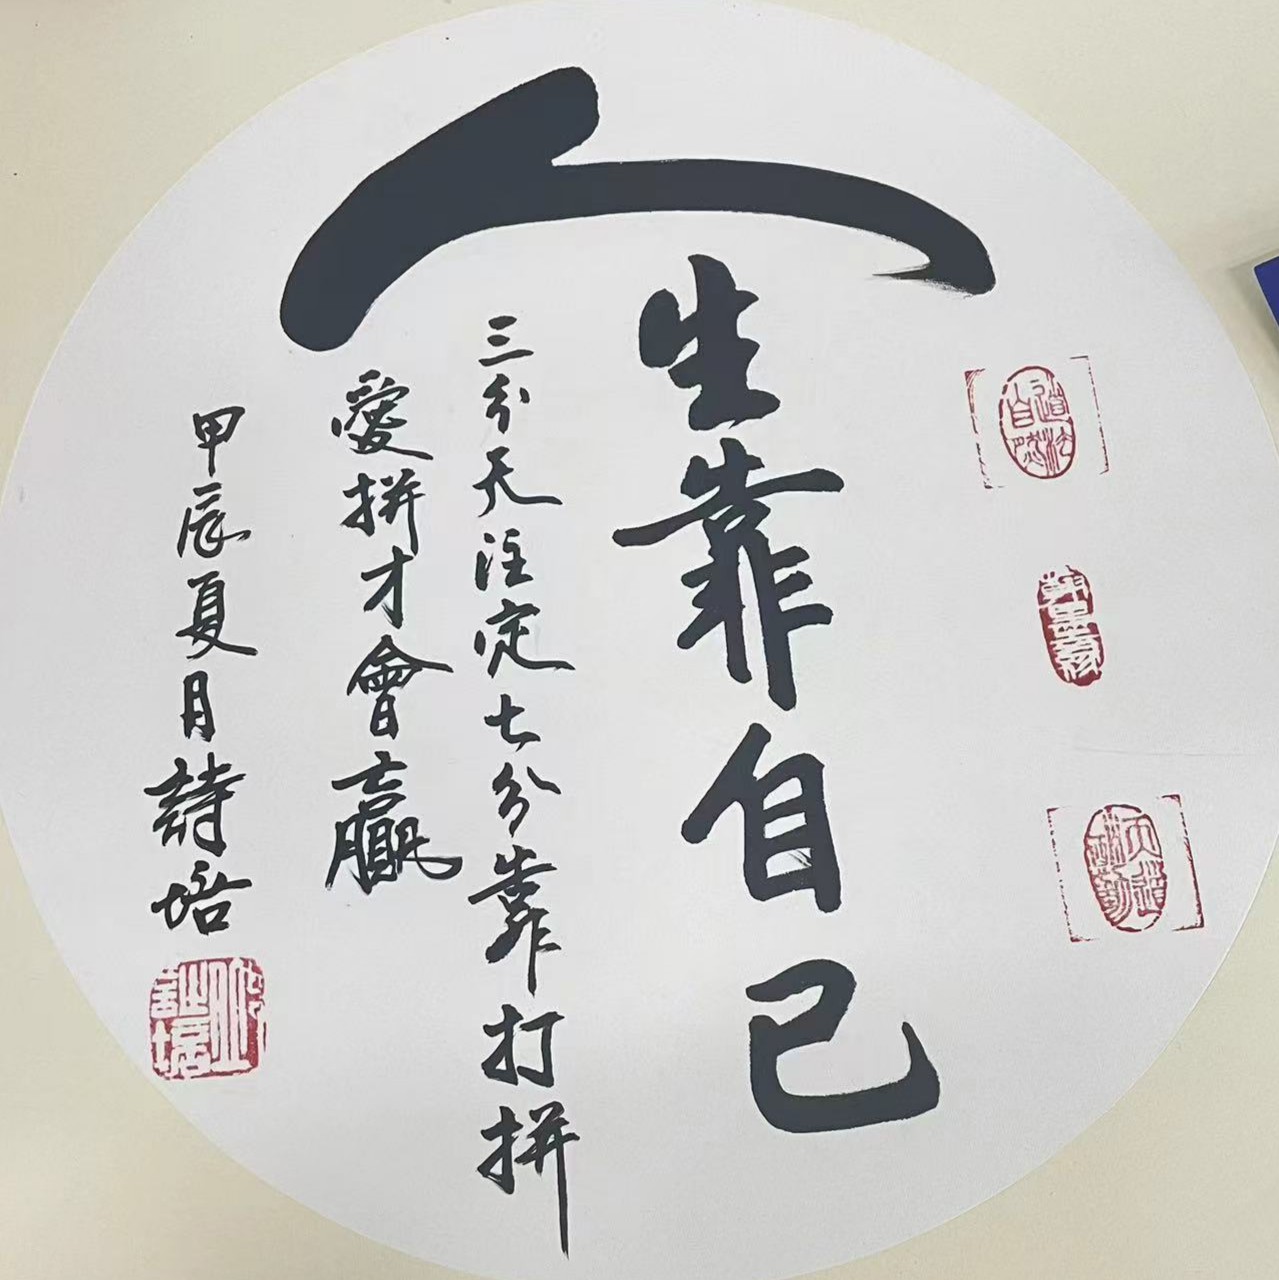 人生靠自己
三分天注定七分靠打拼
愛拼才會贏
甲辰夏月詩培
道法自然
翰墨緣
天道酬勤